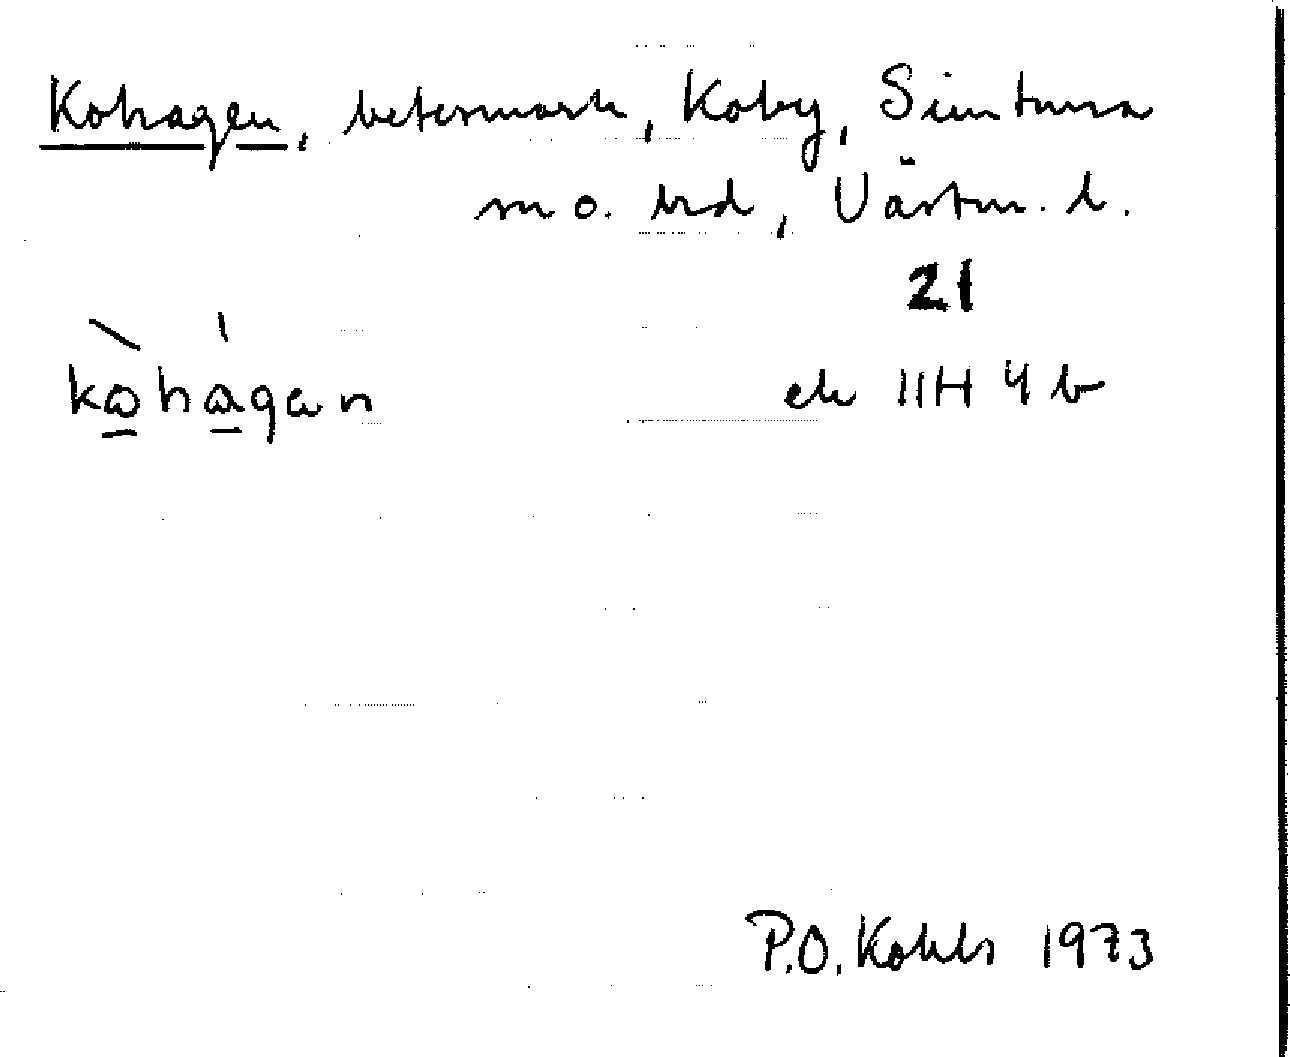 Kohagen, betesmark, Koby, Simtuna
sn o. hd, Västm. l.
21
kòhágan ek 11H 4 b
P.O. Kohls 1973